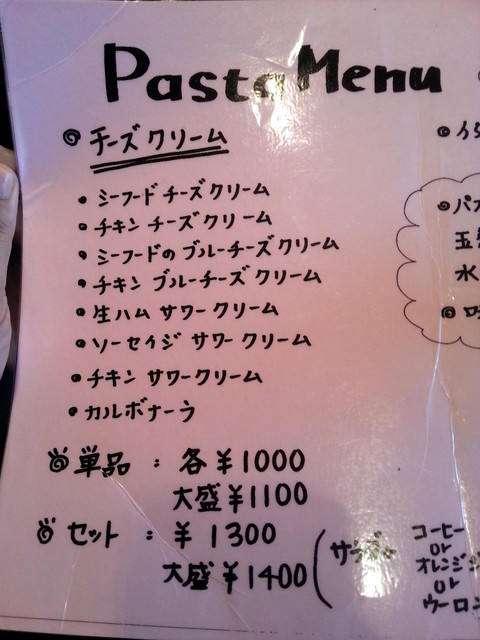 Pasta Menu
チーズクリーム
・シーフードチーズクリーム
・チキンチーズクリーム
・シーフードのブルーチーズクリーム
・チキンブルーチーズクリーム
・生ハムサワークリーム
・ソーセイジサワークリーム
・チキンサワークリーム
・カルボナーラ
単品:各¥1000
大盛¥1100
セット:¥1300
大盛¥1400
(サラダ
コーヒー
or
オレンジ
or
ウーロン
パス
水